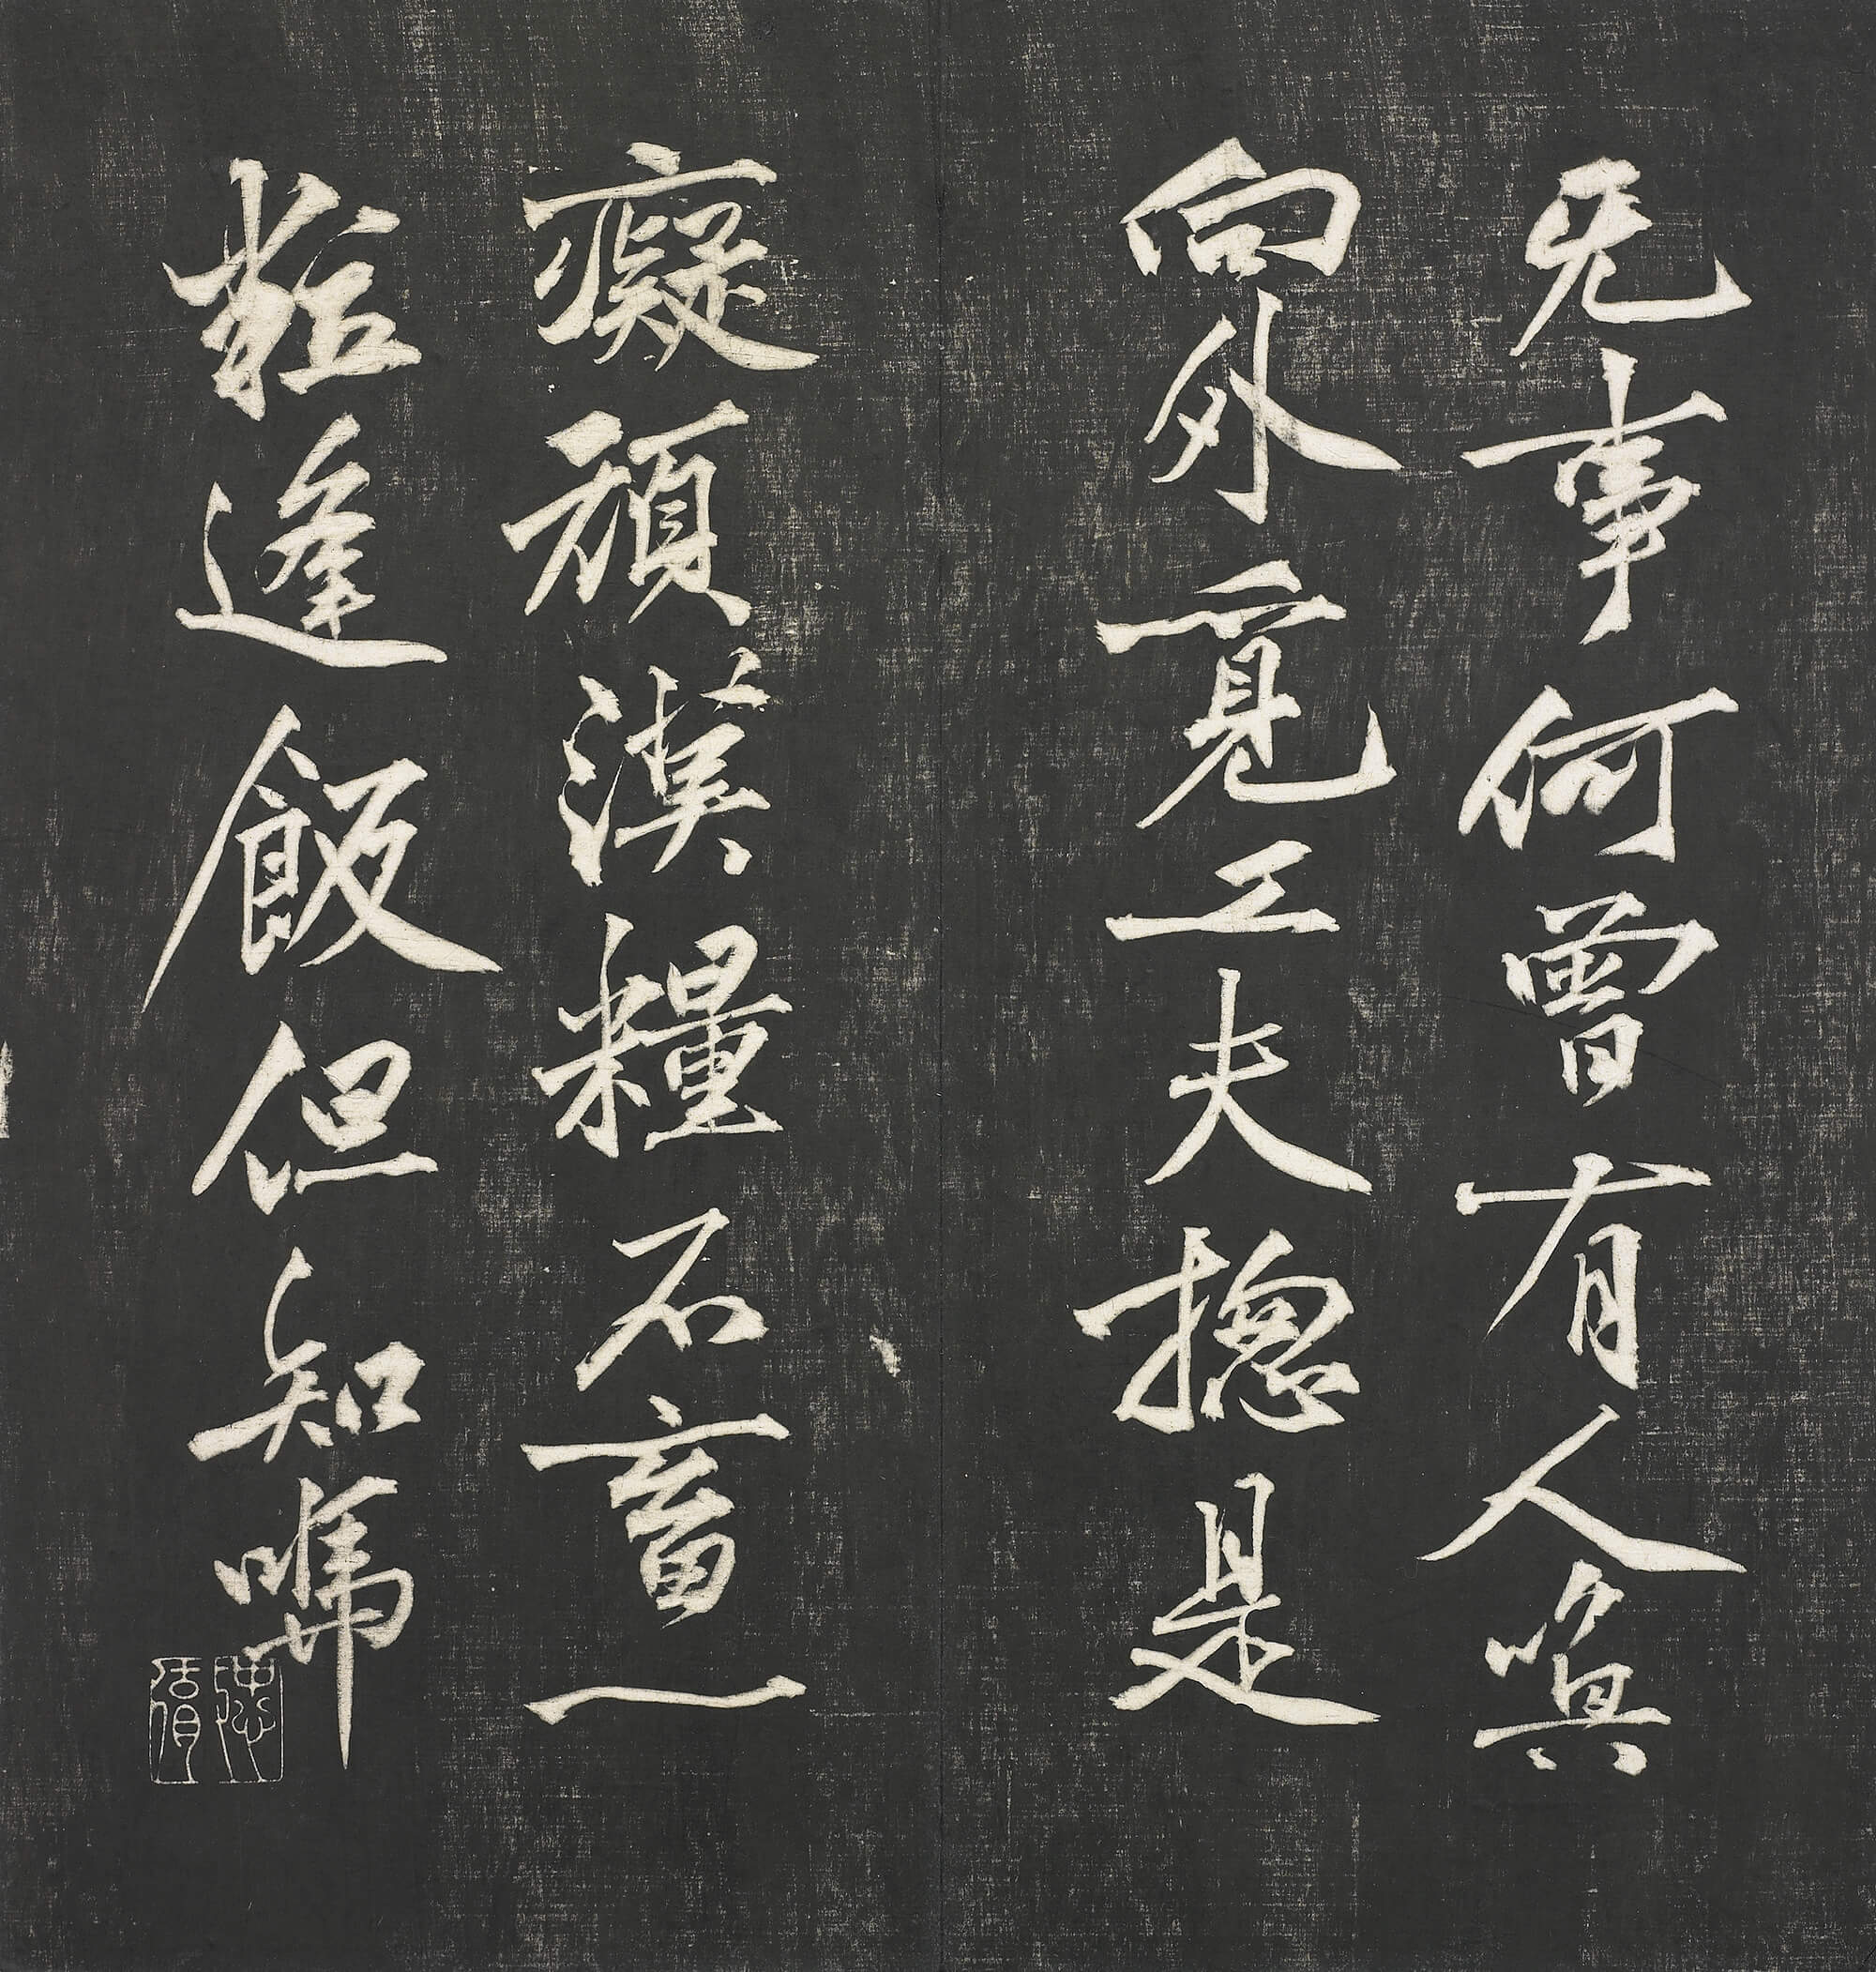 无事何曾有人喚
向外覓工夫摠是
癡頑漢糧不畜一
粒逢飯但知